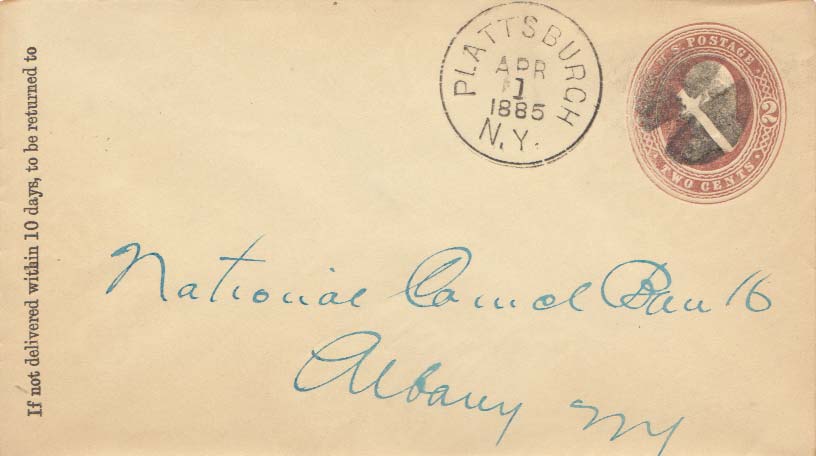 If not delivered within 10 days, to be returned to
PLATTSBURGH
APR
1
1885
N.Y.
U.S. POSTAGE
2
TWO CENTS
National Bank
Albany NY